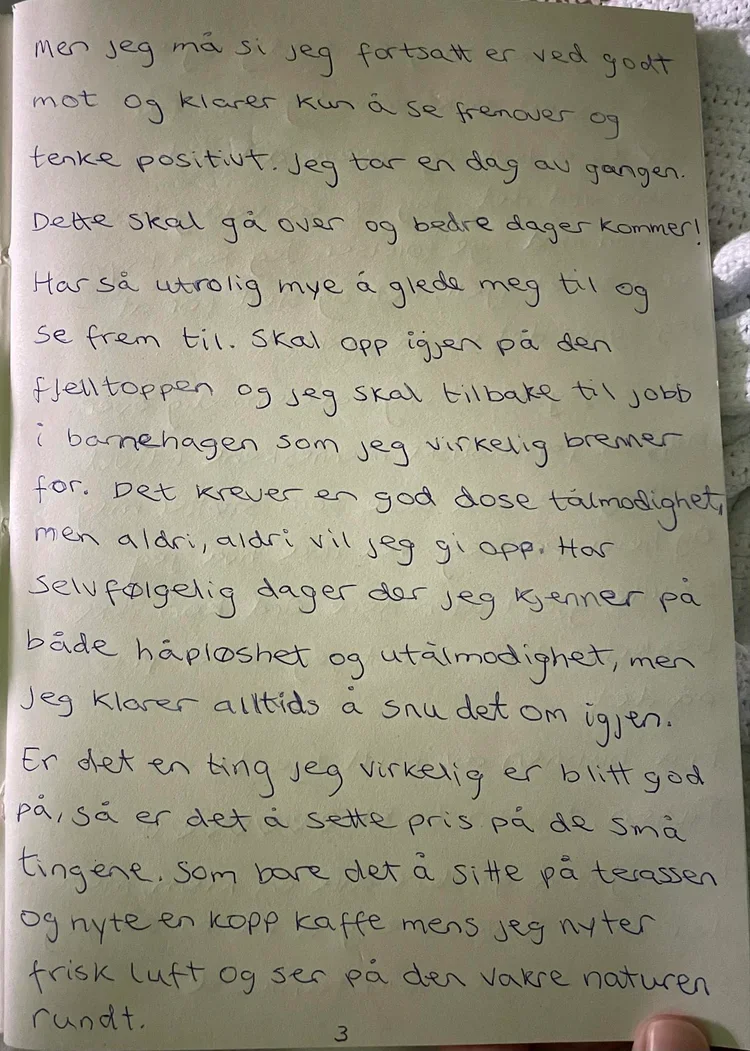 Men jeg må si jeg fortsatt er ved godt
mot og klarer kun å se fremover og
tenke positivt. Jeg tar en dag av gangen.
Dette skal gå over og bedre dager kommer!
Har så utrolig mye å glede meg til og
se frem til. Skal opp igjen på den
fjelltoppen og jeg skal tilbake til jobb
i barnehagen som jeg virkelig brenner
for. Det krever en god dose tålmodighet,
men aldri, aldri vil jeg gi opp. Har
selvfølgelig dager der jeg kjenner på
både håpløshet og utålmodighet, men
jeg klarer alltids å snu det om igjen.
Er det en ting jeg virkelig er blitt god
på, så er det å sette pris på de små
tingene. Som bare det å sitte på terassen
og nyte en kopp kaffe mens jeg nyter
frisk luft og ser på den vakre naturen
rundt.
3